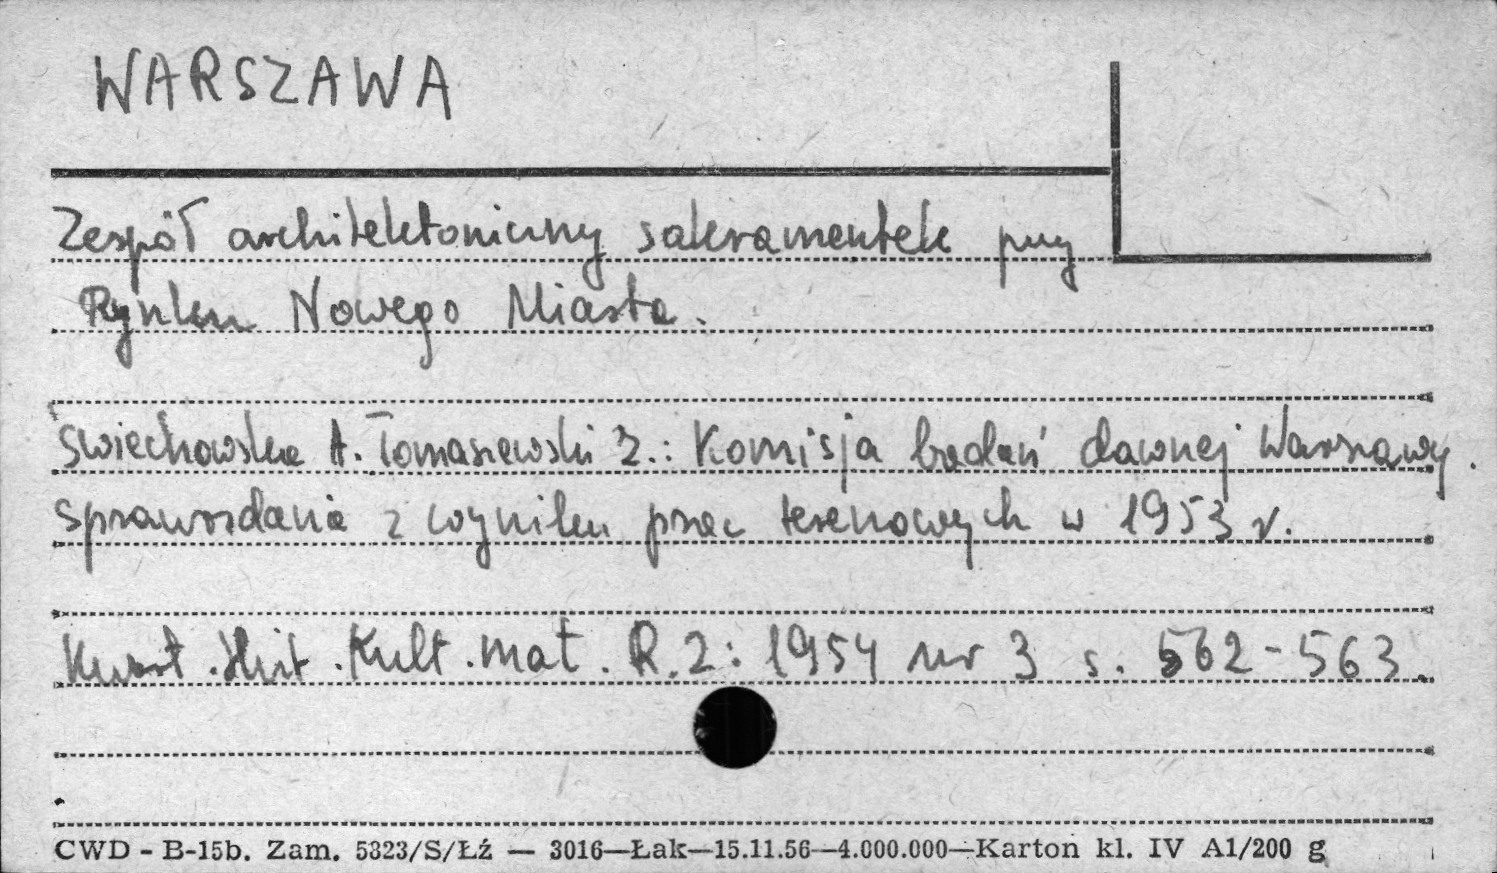 WARSZAWA
Zespół architektoniczny sakramentek przy
Rynku Nowego Miasta.
Świechowska A. Tomaszewski Z.: Komisja badań dawnej Warszawy.
Sprawozdanie z wyniku prac terenowych w 1953 r.
Kwart. Hist. Kult. mat. R.2: 1954 nr 3 s. 562-563.
CWD - B-15b. Zam. 5323/S/Łź — 3016—Łak—15.11.56—4.000.000—Karton kl. IV A1/200 g